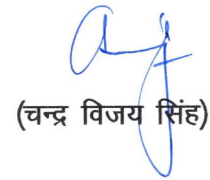 (चन्द्र विजय सिंह)